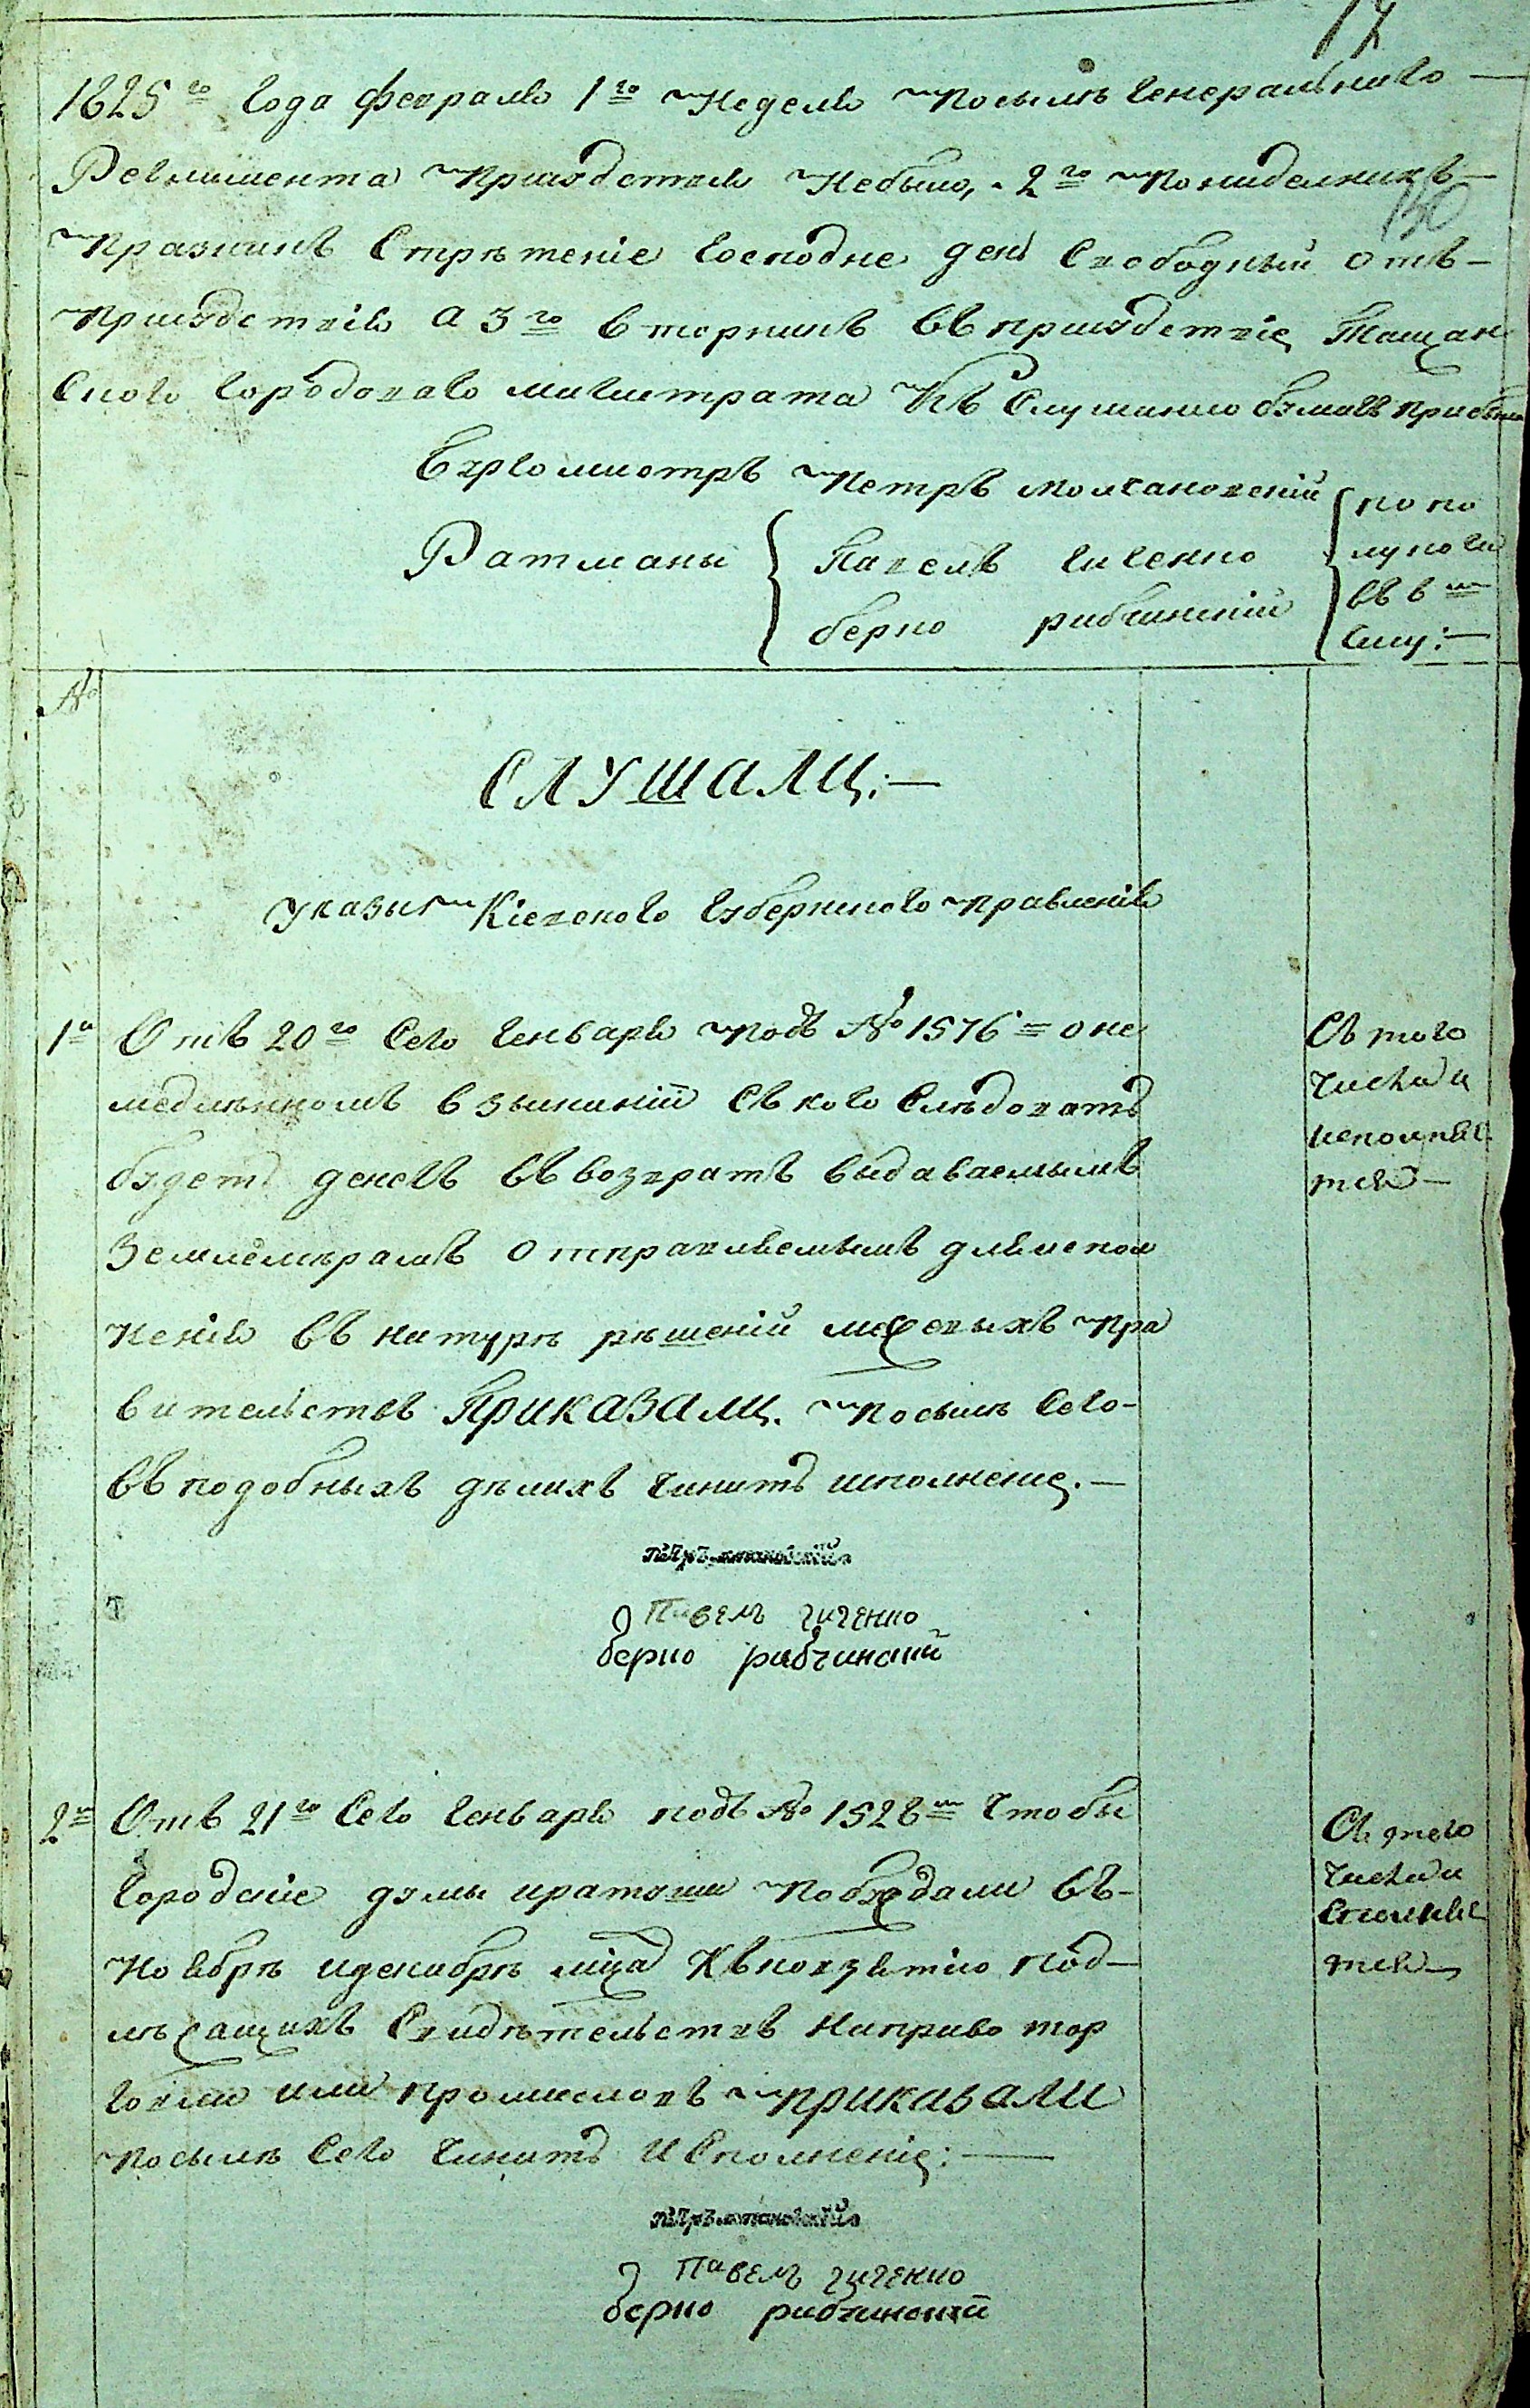 17
1825го года февраля 1го Неделя Посылѣ Генеральнаго —
Регламента Присудствія Небыло, 2го Понидѣлникъ —
150
Празникъ Стрѣтеніе Господне день Свободный отъ —
Присудствія а 3го вторникъ въ присудствіе Таращан
ского городоваго магистрата Къ Слушанію бумагъ прибыли
Бургомистръ Петръ молчановскій
Ратманы
Павелъ гиченко
берко рабчинскій
по по
луночи
въ 8м
часу:—
№
СЛУШАЛИ:—
указы Кіевского Губернского Правленія
1й Отъ 20го Сего Генваря Подъ № 1576 = о не
медлѣнномъ взысканій съ кого Слѣдовать
будетъ денегъ въ возвратъ выдаваемымъ
Землемѣрамъ отправляемымъ для испол
Неніи въ натурѣ рѣшеній межевыхъ Пра
вительствъ ПРИКАЗАЛИ. Посылѣ Сего —
въ подобныхъ дѣлахъ Чинить исполненіе. —
Съ того
числа и
исполняе
тся —
Павелъ гиченко
берко рабчинский
2й Отъ 21го Сего Генваря подъ № 1528м Чтобы
Городскіе думы иратуши Побуждали въ —
Ноябрѣ идекабрѣ мцѣ Къ повзятію под —
лѣжащихъ Свидѣтельствъ Направо тор
говли или промисловъ ПРИКАЗАЛИ
Посылѣ Сего Чинить Исполненіе: —
Съ того
числа и
Сполняе
тся —
Павелъ гиченко
берко рабчинский